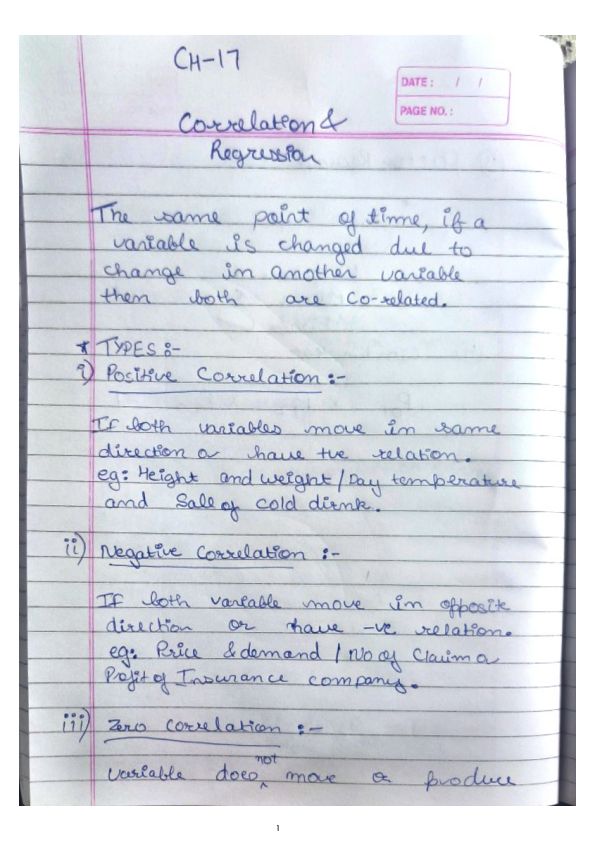 CH-17
DATE : / /
PAGE NO. :
Correlation &
Regression
The same point of time, if a
variable is changed due to
change in another variable
then both are Co-related.
* TYPES :-
i) Positive Correlation :-
If both variables move in same
direction or have +ve relation.
eg: Height and weight / Day temperature
and Sale of cold dirnk.
ii) Negative Correlation :-
If both variable move in opposite
direction or have -ve relation.
eg: Price & demand / No of Claim &
Pofit of Insurance company.
iii) Zero Correlation :-
variable does not move or produce
1